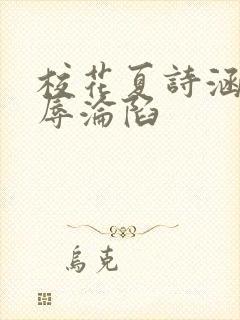 校花夏詩涵
辱淪陷
烏克